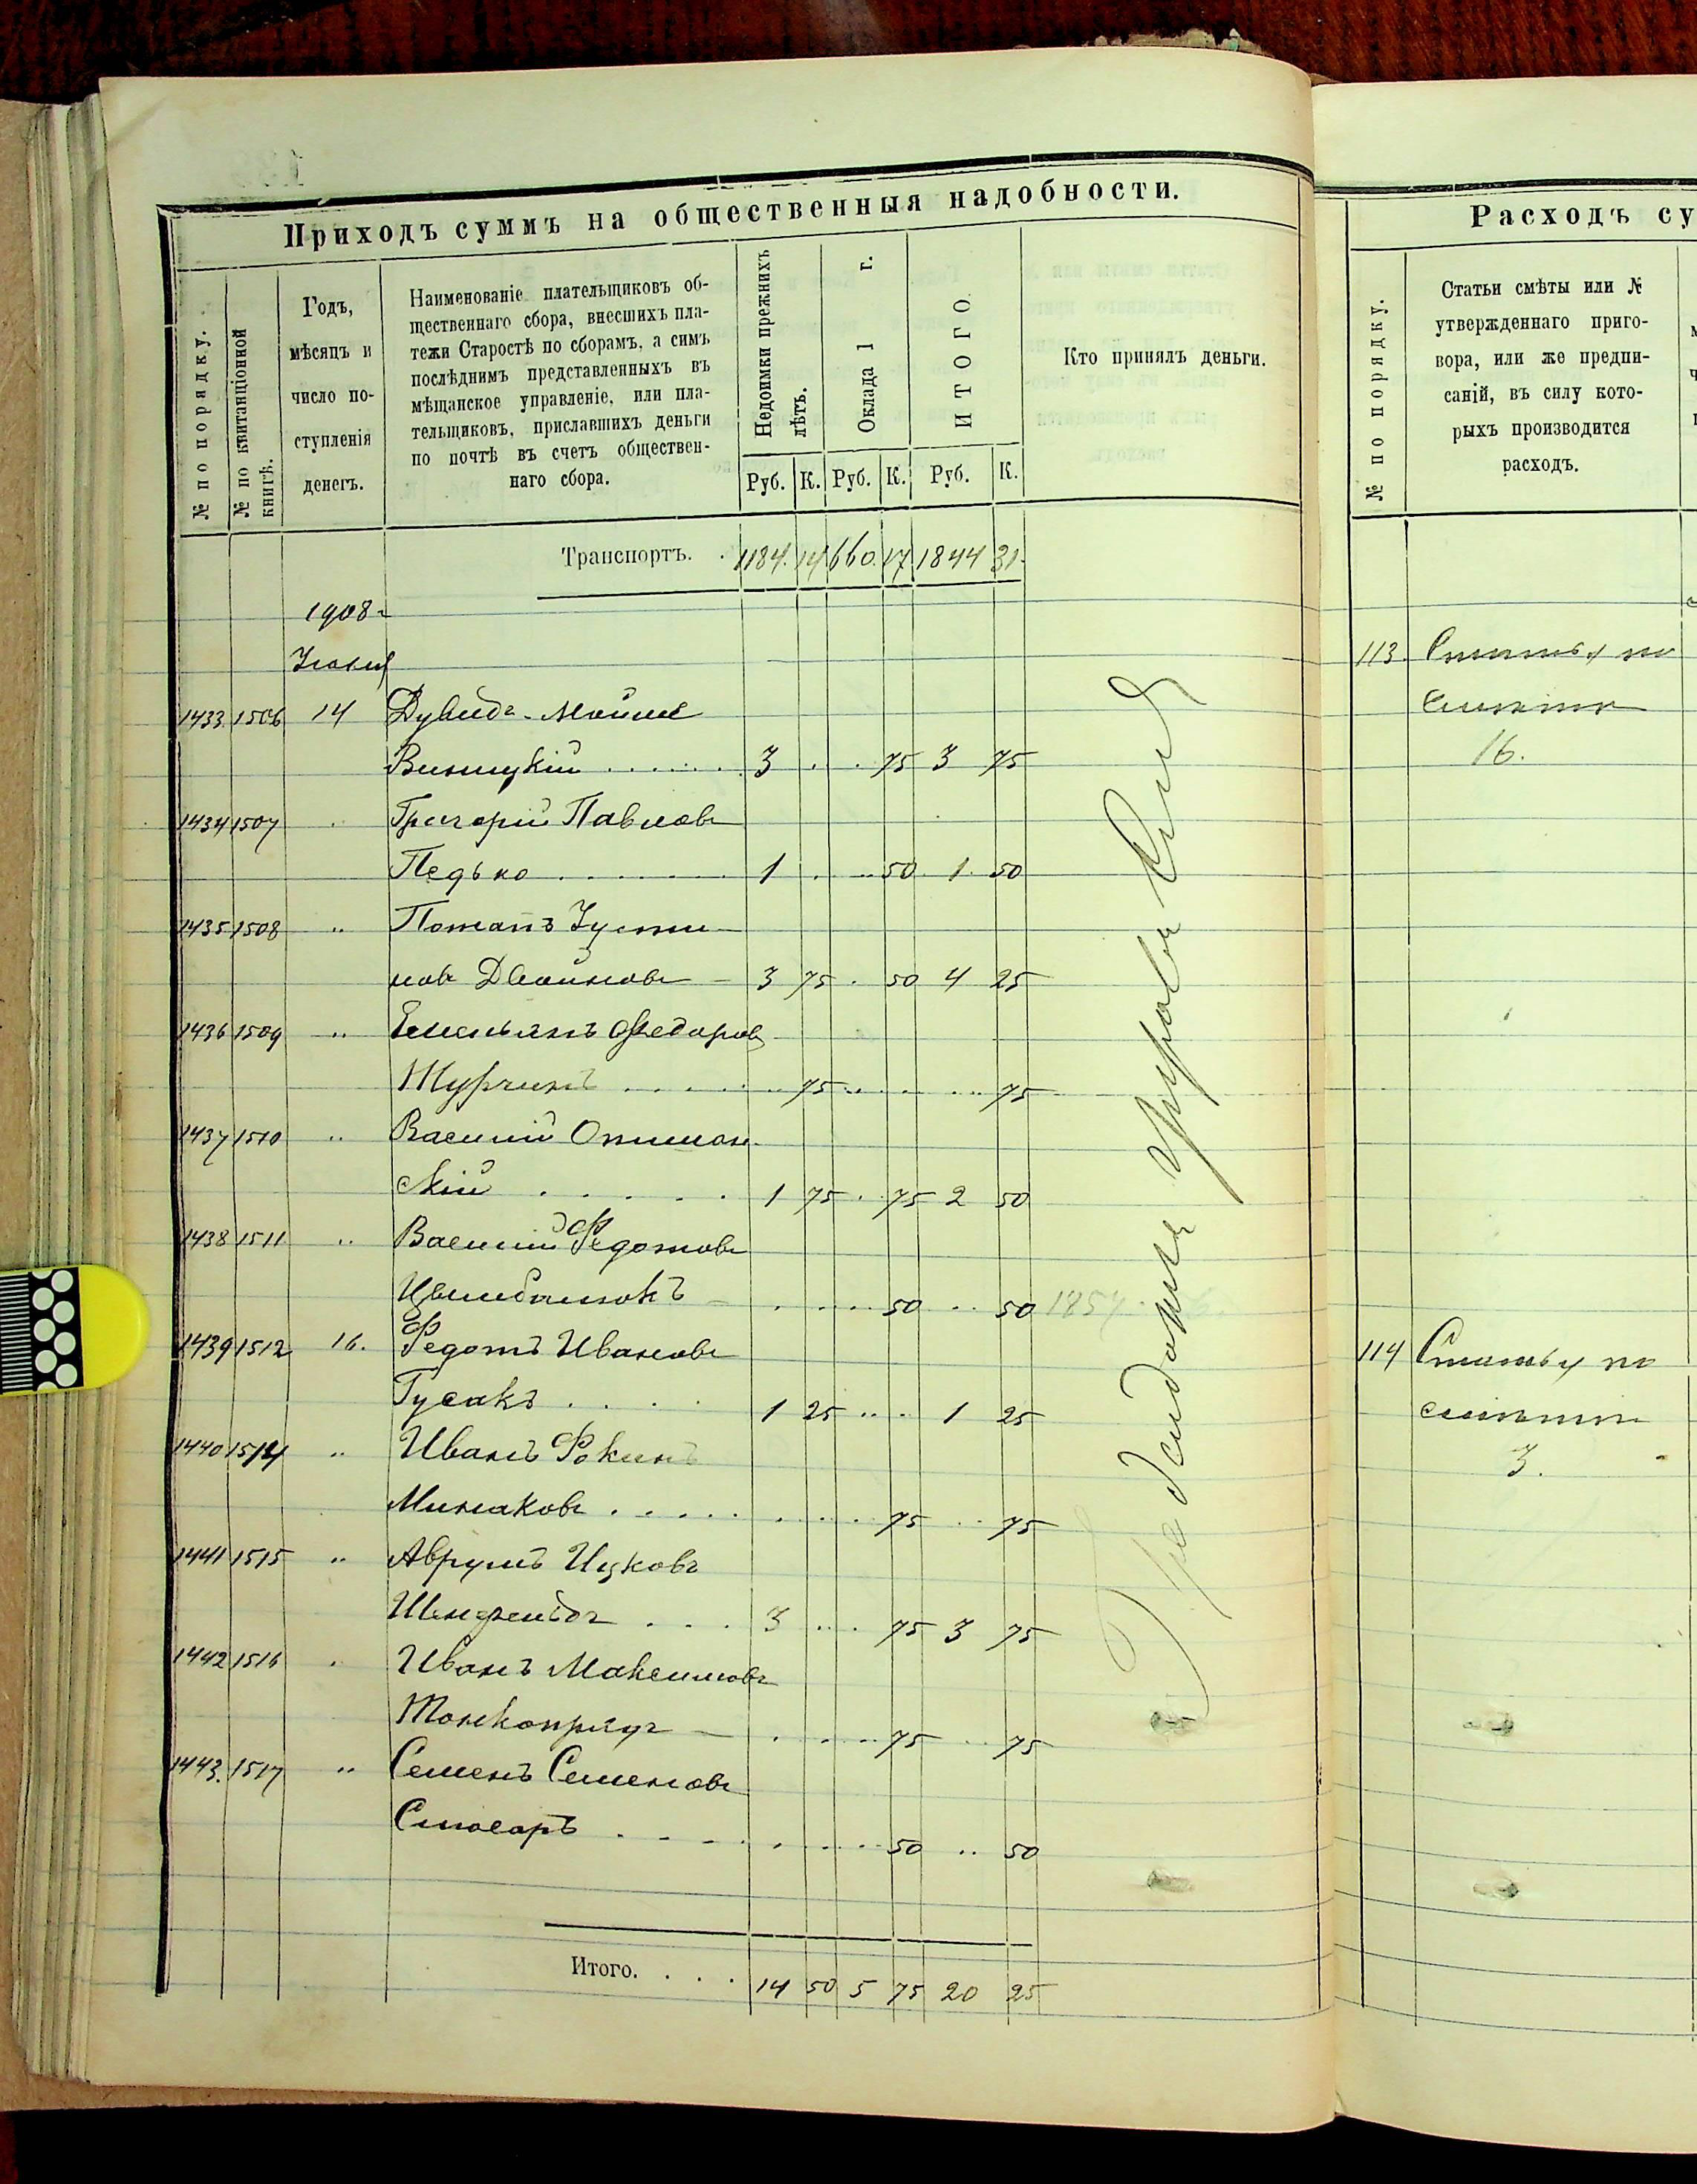 Приходъ суммъ на общественныя надобности.
№ по порядку.
№ по квитанціонной
книгѣ.
Годъ,
мѣсяцъ и
число по-
ступленія
денегъ.
Наименованіе плательщиковъ об-
щественнаго сбора, внесшихъ пла-
тежи Старостѣ по сборамъ, а симъ
послѣднимъ представленныхъ въ
мѣщанское управленіе, или пла-
тельщиковъ, приславшихъ деньги
по почтѣ въ счетъ обществен-
наго сбора.
Недоимки прежнихъ
лѣтъ.
Оклада 1 г.
ИТОГО.
Руб. К. Руб. К. Руб. К.
Кто принялъ деньги.
Транспортъ. 1184. 14 660. 17 1844 31.
1908 г
Іюня
1433. 1506 14 Дувидъ-Мойше
Виницкій 3 75 3 75
1434 1507 Григорій Павловъ
Педько 1 50 1 50
1435 1508 " Потапъ Іусти-
новъ Двойновъ 3 75 50 4 25
1436 1509 " Емельянъ Федоровъ
75 75
1437 1510 " Василий
скій 1 75 75 2 50
1438 1511 " Василий Федотовъ
50 50
1439 1512 16. Федотъ Ивановъ
Гусакъ 1 25 1 25
1440 1514 " Иванъ Фокинъ
Минаковъ 75 75
1441 1515 " Аврумъ Ицковъ
3 75 3 75
1442 1516 Иванъ Максимовъ
Тонконридъ 75 75
1443. 1517 " Семенъ Семеновъ
Слюсарь 50 50
Итого. 14 50 5 75 20 25
Расходъ су
№ по порядку.
Статьи смѣты или №
утвержденнаго приго-
вора, или же предпи-
саній, въ силу кото-
рыхъ производится
расходъ.
113. Статья по
смѣтѣ
16.
114 Статья по
смѣтѣ
3.